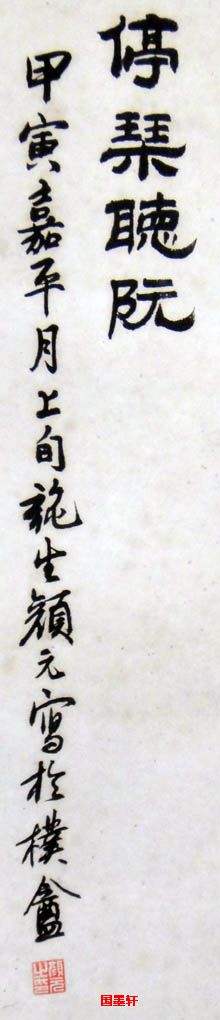 停琹聽阮
甲寅嘉平月上旬純生顏元寫於樸盦
国墨轩